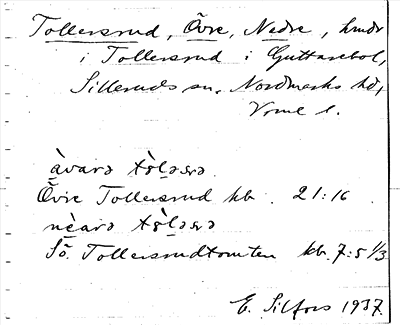 Tollersrud, Övre, Nedre, hmdr
i Tollersrud i Guttarebol,
Silleruds sn, Nordmarks hd,
Vrml l.
àvarə tò̤ləsrə
Övre Tollersrud kb. 21:16
nèarə tò̤ləsrə
Sö. Tollersrudtomten kb. 7:5 1/3
E. Silfors 1937.